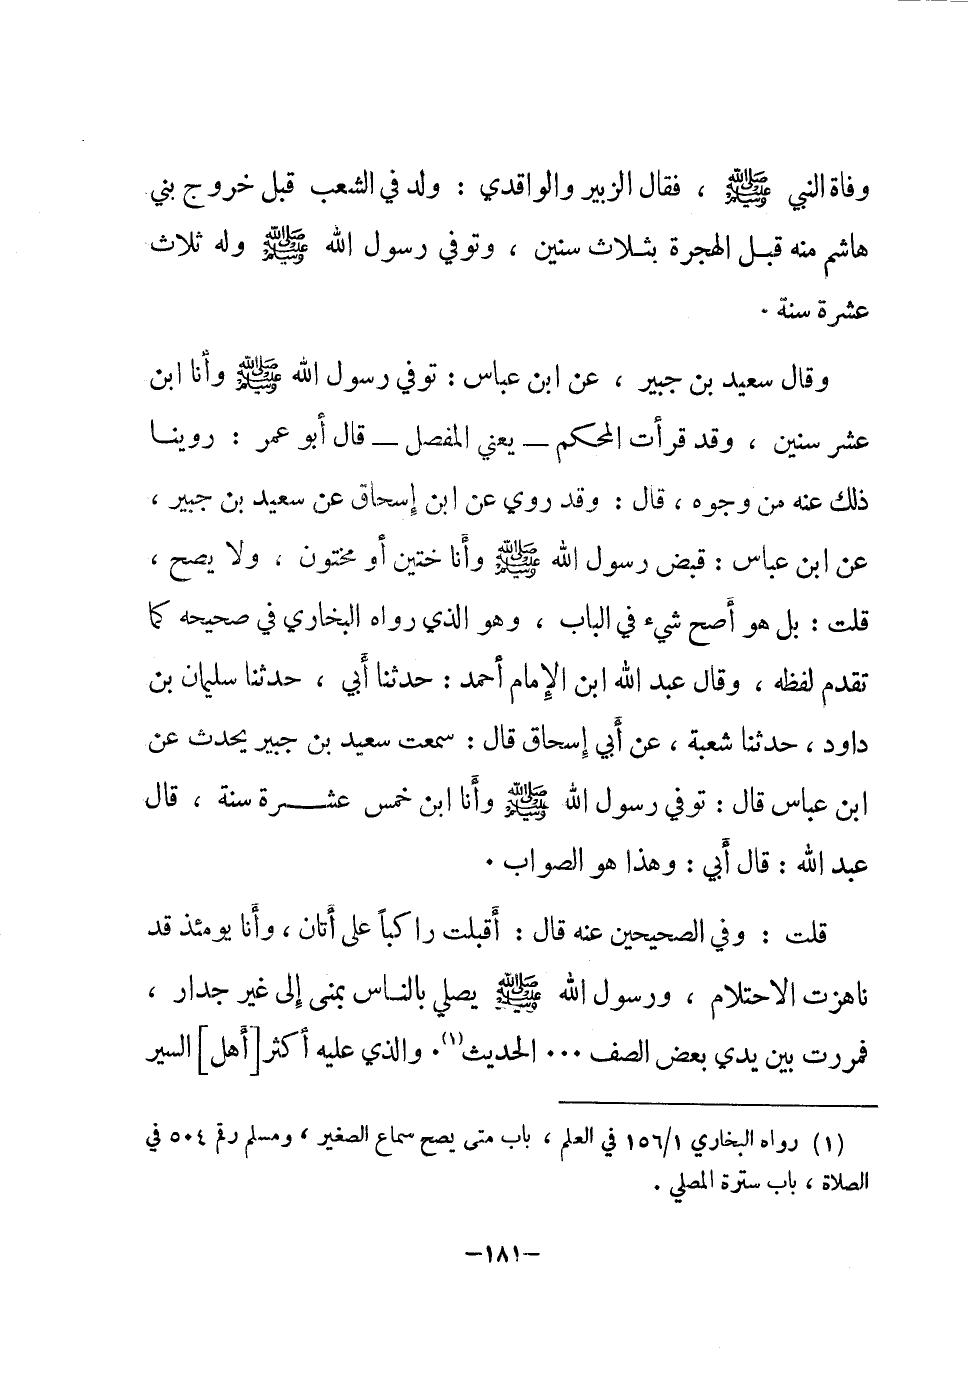 وفاة النبي ﷺ ، فقال الزبير والواقدي : ولد في الشعب قبل خروج بني
هاشم منه قبـل الهجرة بثـلاث سنين ، وتوفي رسول الله ﷺ وله ثلاث
عشرة سنة ٠
وقال سعيد بن جبير ، عن ابن عباس : توفي رسول الله ﷺ وأنا ابن
عشر سنين ، وقد قرأت المحكم ــ يعني المفصل ــ قال أبو عمر : روينـا
ذلك عنه من وجوه ، قال : وقد روي عن ابن إسحاق عن سعيد بن جبير ،
عن ابن عباس : قبض رسول الله ﷺ وأنا ختين أو مختون ، ولا يصح ،
قلت : بل هو أصح شيء في الباب ، وهو الذي رواه البخاري في صحيحه كما
تقدم لفظه ، وقال عبد الله ابن الإمام أحمد : حدثنا أبي ، حدثنا سليمان بن
داود ، حدثنا شعبة ، عن أبي إسحاق قال : سمعت سعيد بن جبير يحدث عن
ابن عباس قال : توفي رسول الله ﷺ وأنا ابن خمس عشـــرة سنة ، قال
عبد الله : قال أبي : وهذا هو الصواب ٠
قلت : وفي الصحيحين عنه قال : أقبلت راكباً على أتان ، وأنا يومئذ قد
ناهزت الاحتلام ، ورسول الله ﷺ يصلي بالنـاس بمنى إلى غير جدار ،
فمررت بين يدي بعض الصف ٠٠٠ الحديث(١)٠ والذي عليه أكثر [أهل] السير
(١) رواه البخاري ١٥٦/١ في العلم ، باب متى يصح سماع الصغير ، ومسلم رقم ٥٠٤ في
الصلاة ، باب سترة المصلي ٠
–١٨١–